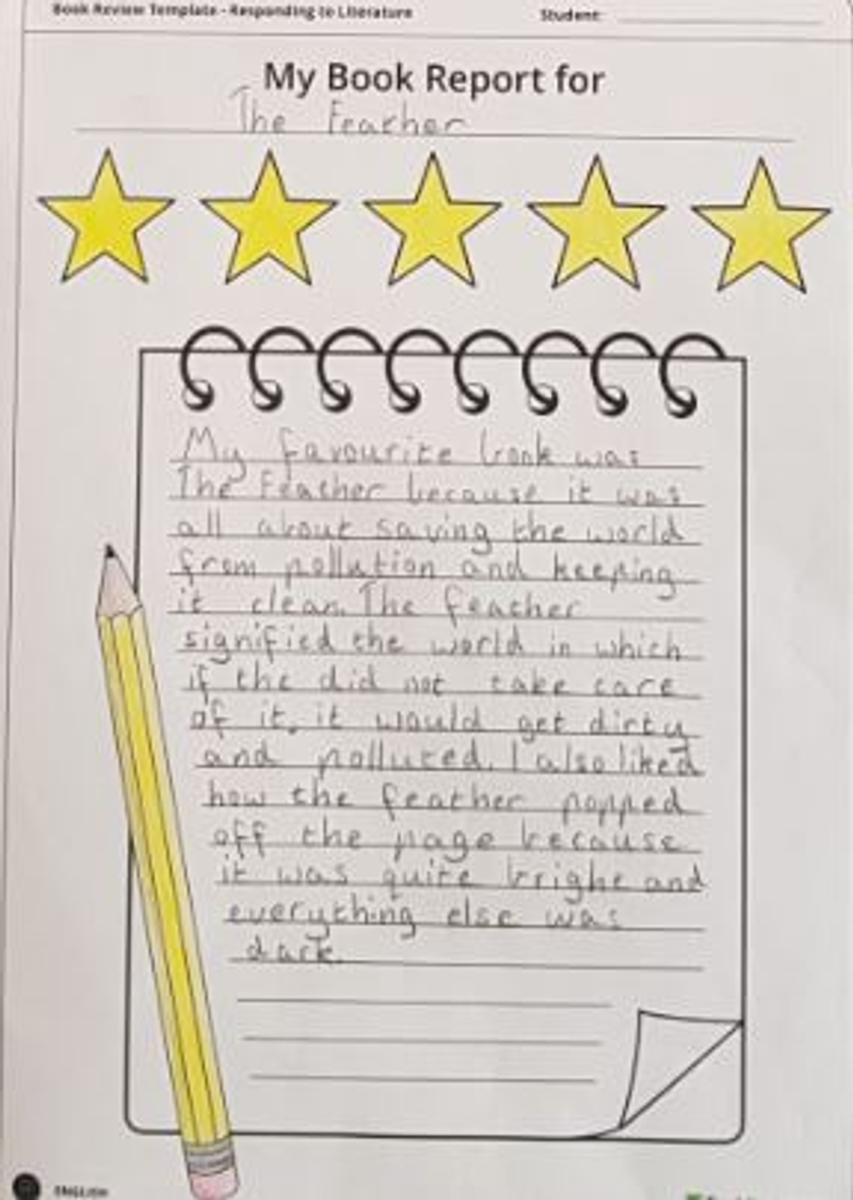 Book Review Template - Responding to Literature
Student:
My Book Report for
The Feather
My favourite book was
The Feather because it was
all about saving the world
from pollution and keeping
it clean. The feather
signified the world in which
if the did not take care
of it, it would get dirty
and polluted. I also liked
how the feather popped
off the page because
it was quite bright and
everything else was
dark.
ENGLISH